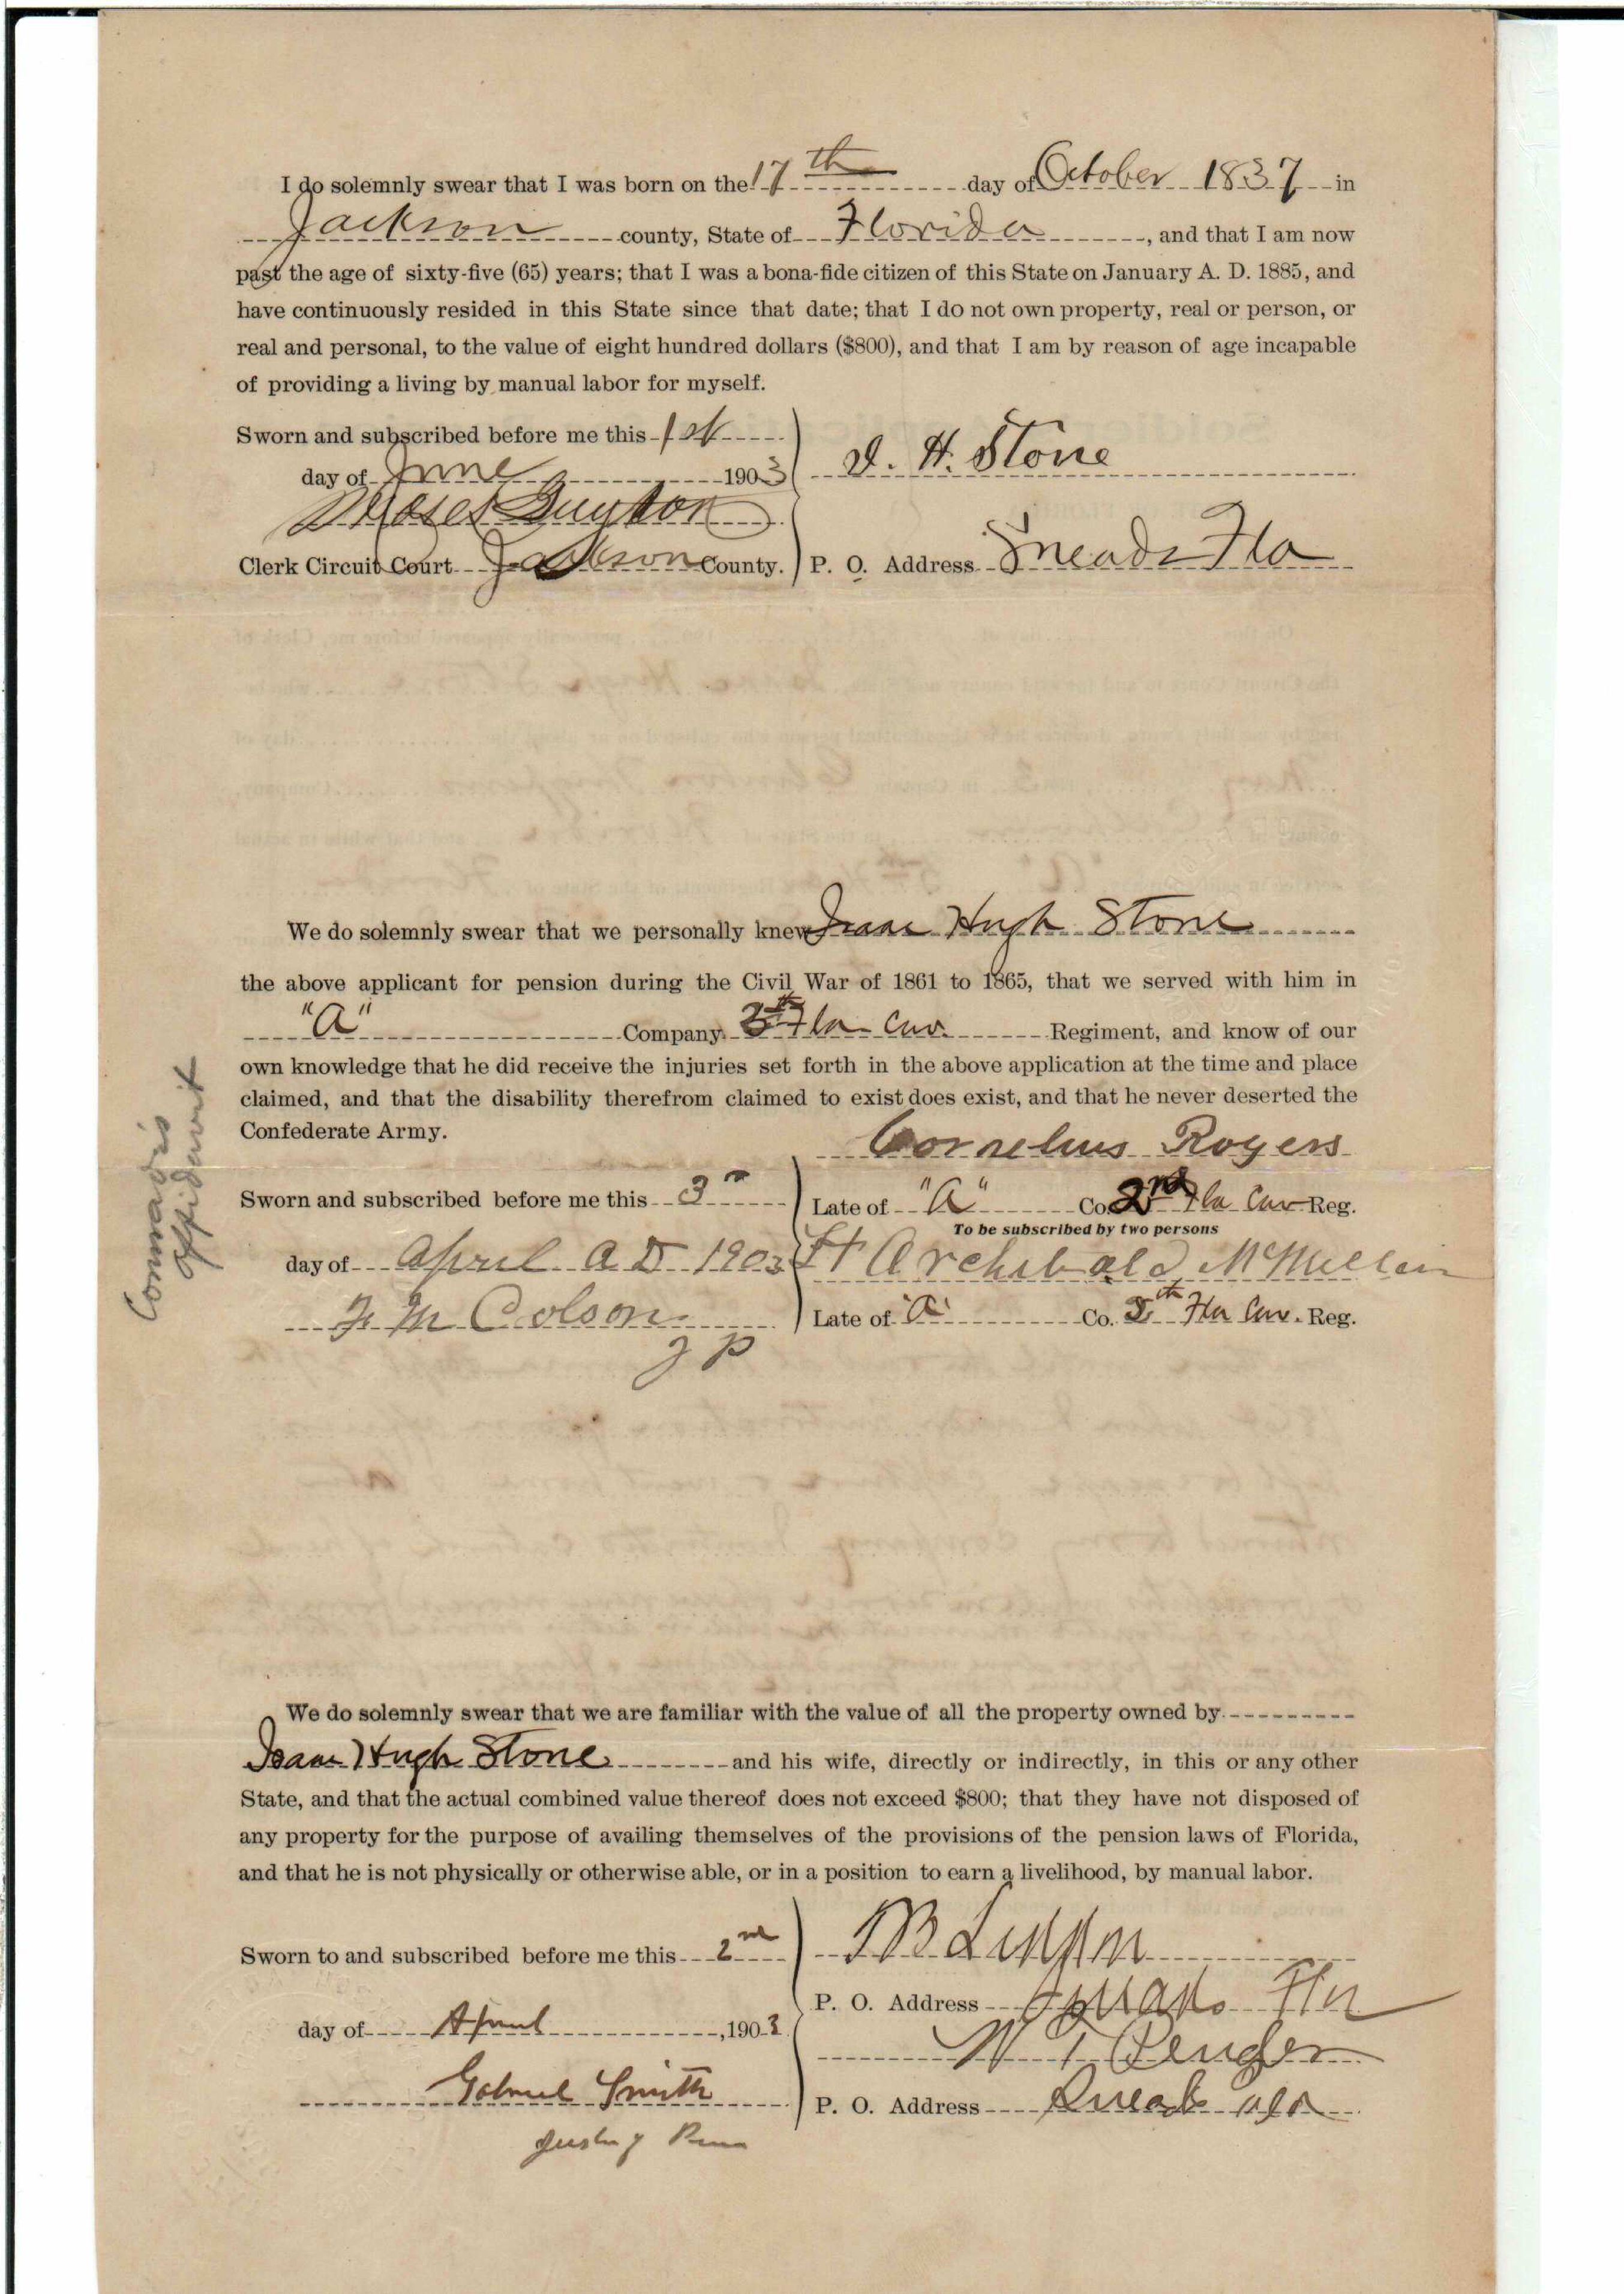 I do solemnly swear that I was born on the 17th day of October 1837 in
Jackson county, State of Florida, and that I am now
past the age of sixty-five (65) years; that I was a bona-fide citizen of this State on January A. D. 1885, and
have continuously resided in this State since that date; that I do not own property, real or person, or
real and personal, to the value of eight hundred dollars ($800), and that I am by reason of age incapable
of providing a living by manual labor for myself.
Sworn and subscribed before me this 1st
day of June 1903
I. H. Stone
Moses Guyton
Clerk Circuit Court Jackson County.
P. O. Address Sneads Fla
We do solemnly swear that we personally knew Isaac Hugh Stone
the above applicant for pension during the Civil War of 1861 to 1865, that we served with him in
"A" Company. Fla Cav. Regiment, and know of our
own knowledge that he did receive the injuries set forth in the above application at the time and place
claimed, and that the disability therefrom claimed to exist does exist, and that he never deserted the
Confederate Army.
Comrad's
affidavit
Cornelius Rogers
Sworn and subscribed before me this 3
Late of "A" Co. Fla Cav Reg.
To be subscribed by two persons
day of April A D 1903
Archibald McMillan
F M Colson
Late of "A" Co. Fla Cav. Reg.
J P
We do solemnly swear that we are familiar with the value of all the property owned by
Isaac Hugh Stone and his wife, directly or indirectly, in this or any other
State, and that the actual combined value thereof does not exceed $800; that they have not disposed of
any property for the purpose of availing themselves of the provisions of the pension laws of Florida,
and that he is not physically or otherwise able, or in a position to earn a livelihood, by manual labor.
Sworn to and subscribed before me this 2nd
P. O. Address Sneads Fla
day of April, 1903
W T
Gabriel Smith
P. O. Address Sneads Fla